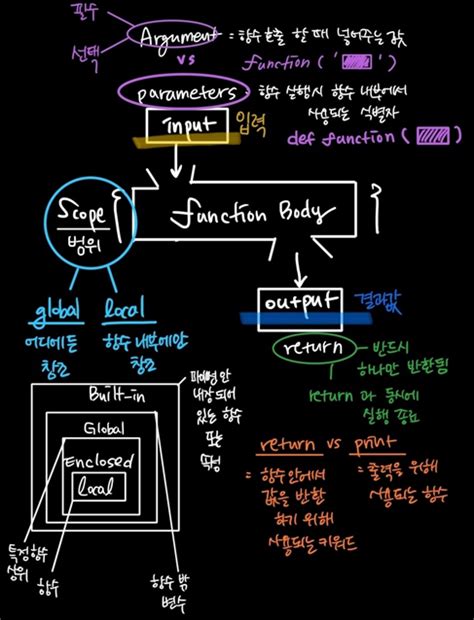 필수
선택
Argument = 함수 호출 할 때 넣어주는 값
vs function (' ')
parameters : 함수 실행시 함수 내부에서
사용되는 식별자
def function ( )
input 입력
Scope
범위
{ function Body }
global local
어디에든 함수 내부에만
참조 참조
output 결과값
return 반드시
하나만 반환됨
return 과 동시에
실행 종료
Built-in
Global
Enclosed
local
파이썬 안
내장 되어
있는 함수
또는
속성
특정 함수
상위
함수
함수 밖
변수
return vs print
= 함수 안에서
값을 반환
하기 위해
사용되는 키워드
= 출력을 위해
사용되는 함수